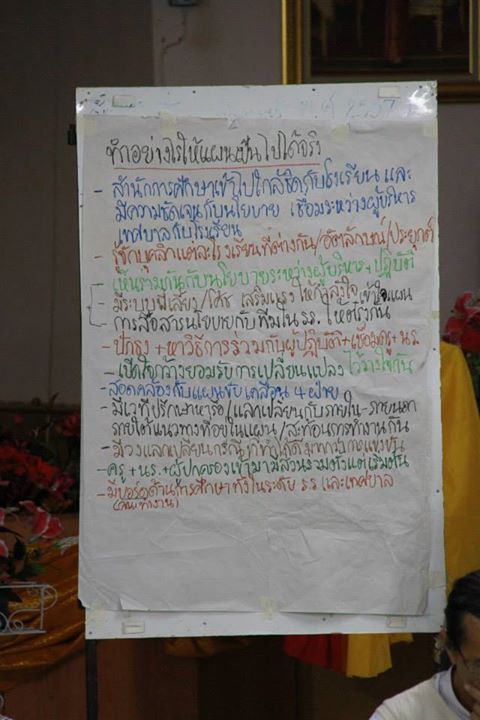 ทำอย่างไรให้แผนเป็นไปได้จริง
- สำนักการศึกษาเข้าไปใกล้ชิดกับโรงเรียน และ
มีความชัดเจนกับนโยบาย เชื่อมระหว่างผู้บริหาร
เทศบาลกับโรงเรียน
- รู้จักบุคลิกแต่ละโรงเรียนที่ต่างกัน/อัตลักษณ์/ประยุกต์
- เห็นร่วมกันกับนโยบายระหว่างผู้บริหาร+ปฏิบัติ
- มีระบบพี่เลี้ยง/โค้ช เสริมแรง ให้กำลังใจ เข้าใจแผน
การสื่อสารนโยบายกับทีมใน รร. ให้ตรงกัน
- ปักธง + หาวิธีการร่วมกับผู้ปฏิบัติ+เชื่อมครู+นร
- เปิดใจกว้างยอมรับการเปลี่ยนแปลง ไว้วางใจกัน
- สอดคล้องกับแผนขับเคลื่อน 4 ฝ่าย
- มีเวทีปรึกษาหารือ/แลกเปลี่ยนกับภายใน-ภายนอก
ภายใต้แนวทางที่อยู่ในแผน/สะท้อนการทำงานกัน
- มีวงแลกเปลี่ยนกรณีที่ทำได้ดีมากกว่าการแข่งขัน
- ครู+นร.+ผู้ปกครองเข้ามามีส่วนร่วมตั้งแต่เริ่มต้น
- มีบอร์ดด้านการศึกษาทั้งในระดับ รร และเทศบาล
(คณะทำงาน)